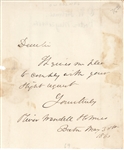 Dear Sir
It gives me pleasure
to comply with your
polite request
Yours truly
Oliver Wendell Holmes
Boston May 30th